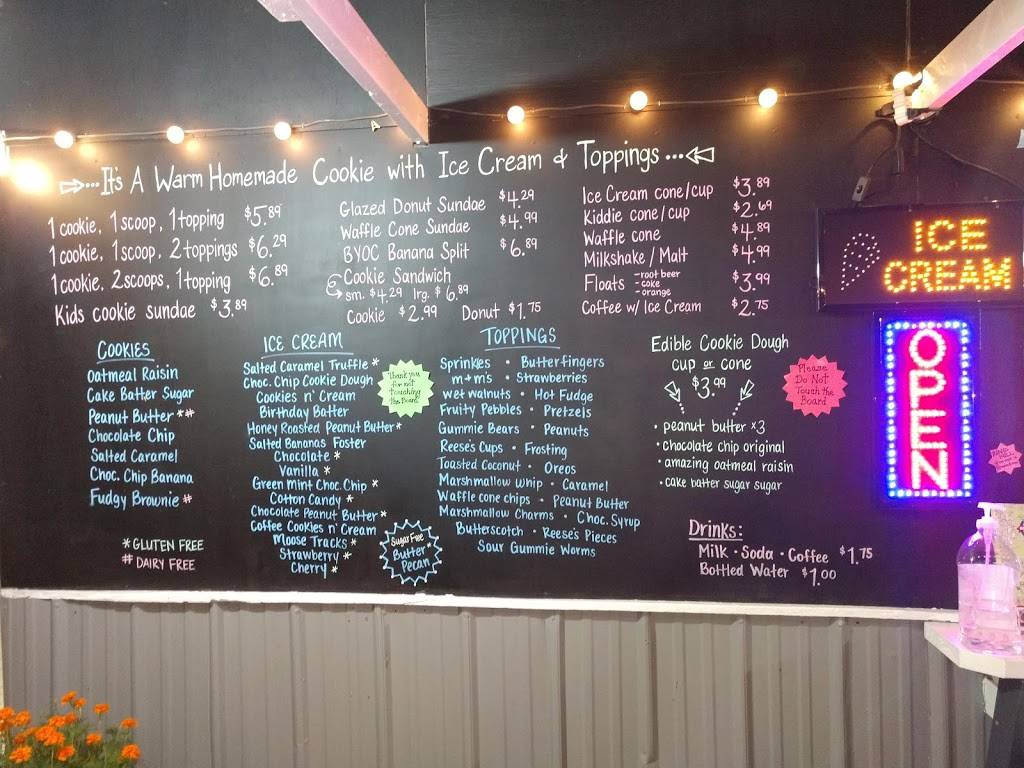 It's A Warm Homemade Cookie with Ice Cream & Toppings...
1 cookie, 1 scoop, 1 topping $5.89
1 cookie, 1 scoop, 2 toppings $6.29
1 cookie, 2 scoops, 1 topping $6.89
Kids cookie sundae $3.89
Glazed Donut Sundae $4.29
Waffle Cone Sundae $4.99
BYOC Banana Split $6.89
Cookie Sandwich
sm. $4.29 lrg. $6.89
Cookie $2.99 Donut $1.75
Ice Cream cone/cup $3.89
Kiddie cone/cup $2.69
Waffle cone $4.89
Milkshake / Malt $4.99
Floats -root beer -coke -orange $3.99
Coffee w/ Ice Cream $2.75
COOKIES
Oatmeal Raisin
Cake Batter Sugar
Peanut Butter *#
Chocolate Chip
Salted Caramel
Choc. Chip Banana
Fudgy Brownie #
* GLUTEN FREE
# DAIRY FREE
ICE CREAM
Salted Caramel Truffle *
Choc. Chip Cookie Dough
Cookies n' Cream
Birthday Batter
Honey Roasted Peanut Butter *
Salted Bananas Foster
Chocolate *
Vanilla *
Green Mint Choc. Chip *
Cotton Candy *
Chocolate Peanut Butter *
Coffee Cookies n' Cream
Moose Tracks *
Strawberry *
Cherry *
Thank you
for not
touching
the Board
Sugar Free
Butter *
Pecan
TOPPINGS
Sprinkles • Butterfingers
m+m's • Strawberries
wet walnuts • Hot Fudge
Fruity Pebbles • Pretzels
Gummie Bears • Peanuts
Reese's Cups • Frosting
Toasted Coconut • Oreos
Marshmallow Whip • Caramel
Waffle cone chips • Peanut Butter
Marshmallow Charms • Choc. Syrup
Butterscotch • Reese's Pieces
Sour Gummie Worms
Edible Cookie Dough
cup or cone
$3.99
• peanut butter x3
• chocolate chip original
• amazing oatmeal raisin
• cake batter sugar sugar
Please
Do Not
Touch the
Board
Drinks:
Milk • Soda • Coffee $1.75
Bottled Water $1.00
ICE
CREAM
OPEN